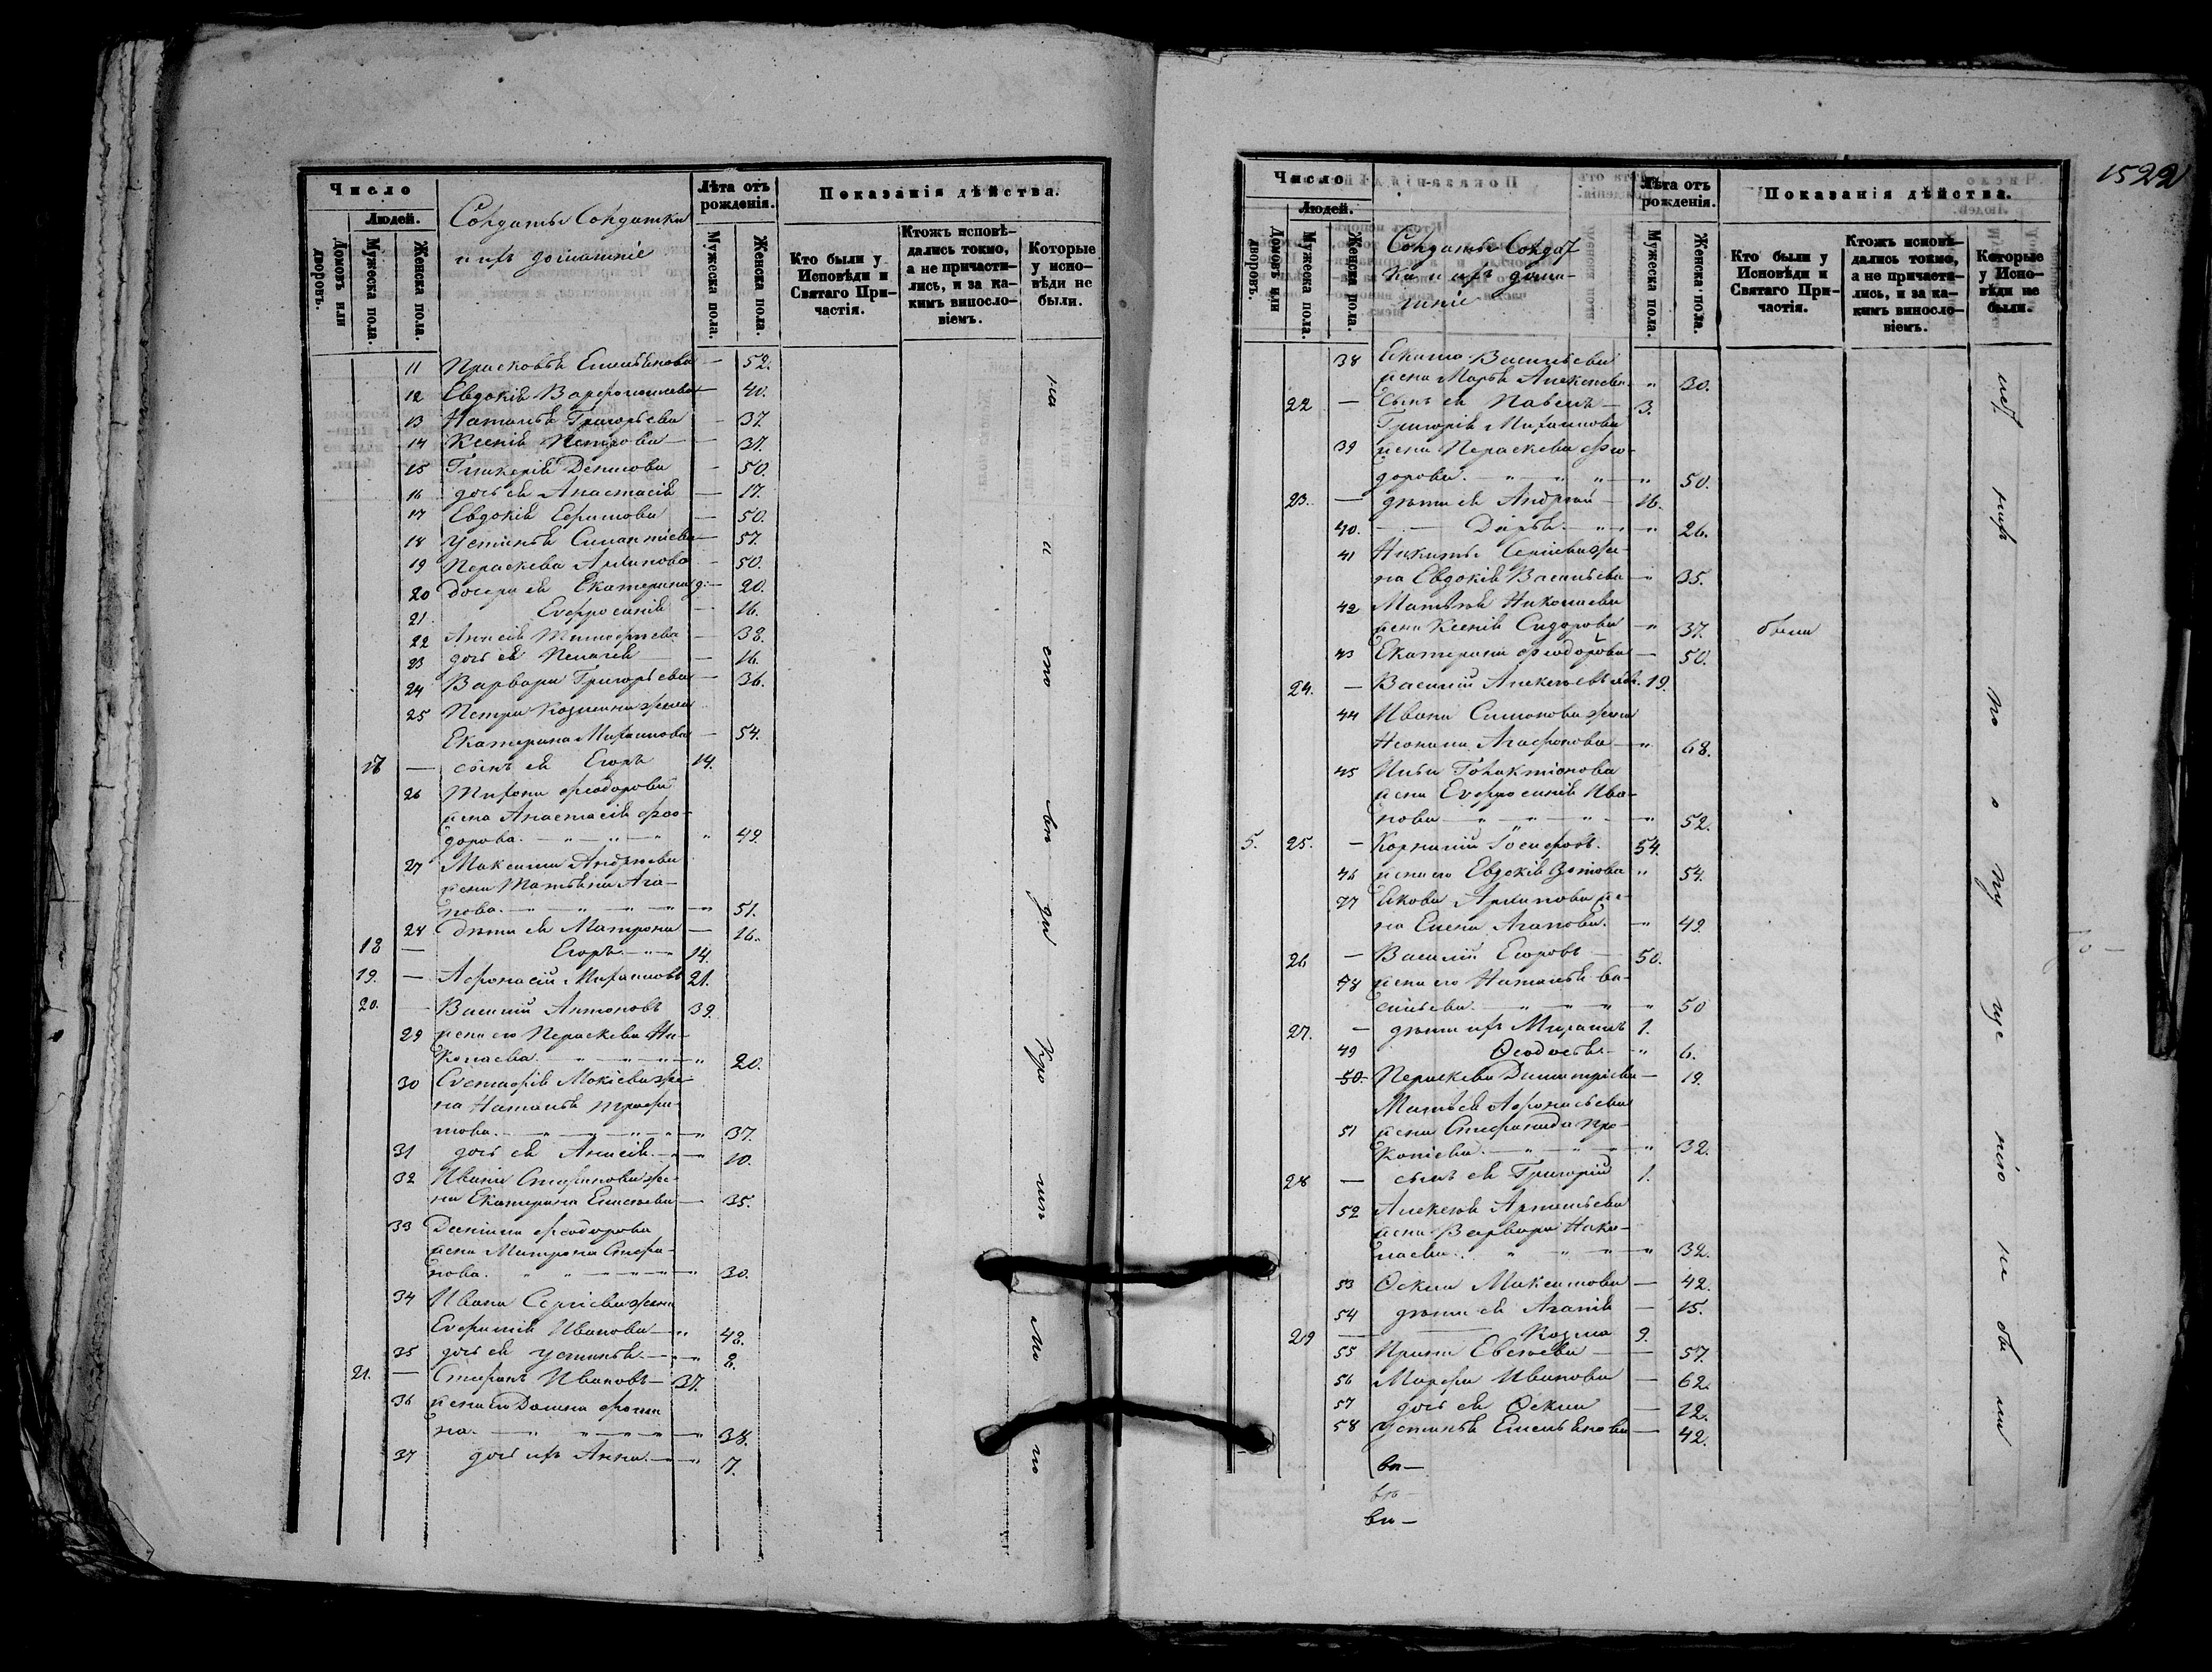 Число
Людей.
Домовъ или дворовъ.
Мужеска пола.
Женска пола.
Солдаты Солдатки
и ихъ домашніе
Лѣта отъ рожденія.
Мужеска пола.
Женска пола.
Показанія дѣйства.
Кто были у Исповѣди и Святаго Причастія.
Ктожъ исповѣ-
дались токмо,
а не причасти-
лись, и за ка-
кимъ винословіемъ.
Которые
у испо-
вѣди не
были.
11 Прасковья Емельянова — 52.
12 Евдокія Варфоломеева — 40.
13 Наталья Григорьева — 37.
14 Ксенія Петрова — 37.
15 Гликерія Денисова — 50.
16 дочь ея Анастасія — 17.
17 Евдокія Ефимова — 50.
18 Устинья — 57.
19 Параскева Архипова — 50.
20 дочери ея Екатерина — 20.
21 Евфросинія — 16.
22 Анисія Тимофеева — 38.
23 дочь ея Пелагея — 16.
24 Варвара Григорьева — 36.
25 Петра Козмина жена
Екатерина Михаилова — 54.
17 — сынъ ея Егоръ 14.
26 Феодорова
жена Анастасія Фео-
дорова. — " — " — " 49.
27 Максима Андреева
жена Татьяна Ага-
пова. — " — " — 51.
28 дѣти ея Матрона — 16.
18 — Егоръ — 14.
19. — Афонасій Михаиловъ 21.
20. — Василій Антоновъ 39.
29 жена его Параскева Ни-
колаева. — " — " — 20.
30 Евстафія Мокіева же-
на Наталья Трофи-
мова. — " — " — 37.
31 дочь ея Анисія. — " 10.
32 Ивана Стефанова же-
на Екатерина Елисеева — 35.
33 Даніила Феодорова
жена Матрона Стефа-
нова. " " — " — " 30.
34 Ивана Сергіева жена
Евфимія Иванова — " 42.
35 дочь ея Устинья. — " 2.
21. — Стефанъ Ивановъ — 37.
36 жена его Домна Фоми-
на. — " — " — 38.
37 дочь ихъ Анна. — " 7.
1522
Число
Людей.
Домовъ или дворовъ.
Мужеска пола.
Женска пола.
Солдаты Солдат-
ки и ихъ дома-
шніе
Лѣта отъ рожденія.
Мужеска пола.
Женска пола.
Показанія дѣйства.
Кто были у
Исповѣди и
Святаго При-
частія.
Ктожъ исповѣ-
дались токмо,
а не причасти-
лись, и за ка-
кимъ винослo-
віемъ.
Которые
у Испо-
вѣди не
были.
38 Екима Васильева
жена Марья Алексеева " 30.
22 — Сынъ ея Павелъ — 3.
Григорія Михаилова
39 жена Параскева Фео-
дорова. — " — " — " 50.
23. — дѣти ея Андрей — 16.
40. — Дарья. — " " 26.
41 Никиты Сергіева же-
на Евдокія Васильева — " 35.
42 Матвѣя Николаева
жена Ксенія Сидорова — " 37. были
43 Екатерина Феодорова — 50.
24. — Василій Алексеевъ 19.
44 Ивана Симонова жена
Неонила Агафонова — " 68.
45 Ильи Галактіонова
жена Евфросинія Ива-
нова — " — " — " 52.
5. 25. — Корнилій Іосифовъ. 54.
46 жена его Евдокія Зотова " 54.
47 Якова Архипова же-
на Елена Агапова. — " 49.
26 — Василій Егоровъ — 50.
48 жена его Наталья Ва-
сильева. — " — " — " 50
27. — дѣти ихъ Михаилъ 1.
49 Феодосья — " 6.
50 Параскева Димитріева — 19.
Матвѣя Афонасьева
51 жена Стефанида Про-
копіева. — " — " — " 32.
28 — сынъ ея Григорій 1.
52 Алексея Артемьева
жена Варвара Нико-
лаева. " — " — " 32.
53 Фекла Максимова — 42.
54 дѣти ея Агапія — 15.
29 — Козма 9.
55 Ирина Евсеева — 57.
56 Марфа Иванова — 62.
57 дочь ея Фекла — 12.
58 Устинья Емельянова — 42.